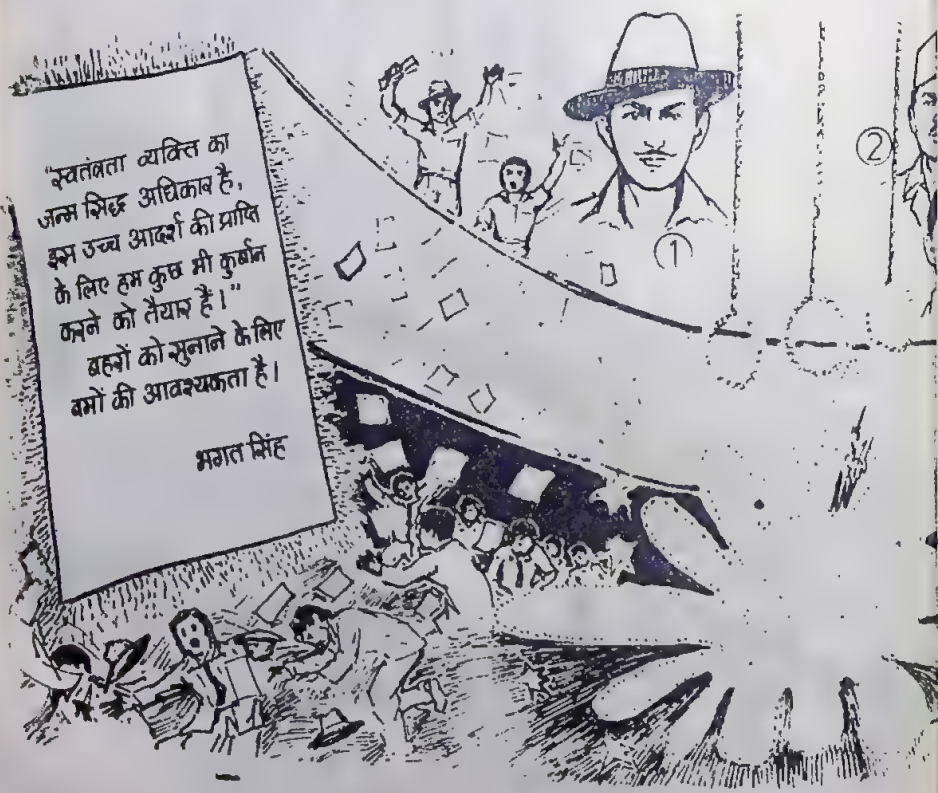 "स्वतंत्रता व्यक्ति का
जन्म सिद्ध अधिकार है,
इस उच्च आदर्श की प्राप्ति
के लिए हम कुछ भी कुर्बान
करने को तैयार है।"
बहरों को सुनाने के लिए
बमों की आवश्यकता है।
भगत सिंह
1
2